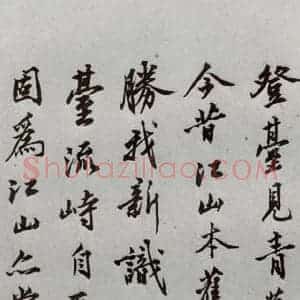 登臺見青
今昔江山本舊
勝我新識
臺流峙自
固爲江山亦
Shufaziliao.com